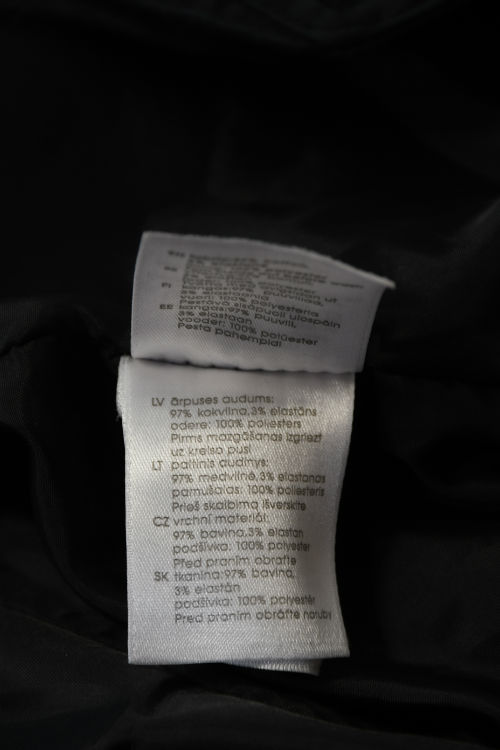 FI
vuori: 100% polyesteria
Pestävä sisäpuoli ulospäin
EE kangas:97% puuvill,
3% elastaan
vooder: 100% polüester
Pesta pahempidi
LV ārpuses audums:
97% kokvilna,3% elastāns
odere: 100% poliesters
Pirms mazgāšanas izgriezt
uz kreiso pusi
LT paltinis audinys:
97% medvilnė,3% elastanas
pamušalas: 100% poliesteris
Prieš skalbimą išverskite
CZ vrchní materiál:
97% bavlna,3% elastan
podšívka: 100% polyester
Před praním obraťte
SK tkanina:97% bavlna,
3% elastán
podšívka: 100% polyestér
Pred praním obráťte naruby